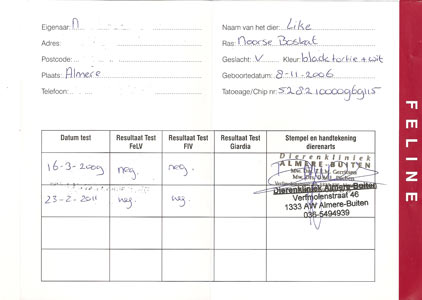 Eigenaar: A
Naam van het dier: Like
Adres:
Ras: Noorse Boskat
Postcode:
Geslacht: V Kleur: blacktortie + wit
Plaats: Almere
Geboortedatum: 8-11-2006
Telefoon:
Tatoeage/Chip nr: 528210000969115
FELINE
Datum test
Resultaat Test FeLV
Resultaat Test FIV
Resultaat Test Giardia
Stempel en handtekening dierenarts
16-3-2009 neg. neg.
Dierenkliniek
ALMERE-BUITEN
23-2-2011 neg. neg.
Dierenkliniek Almere-Buiten
Verfmolenstraat 46
1333 AW Almere-Buiten
036-5494939